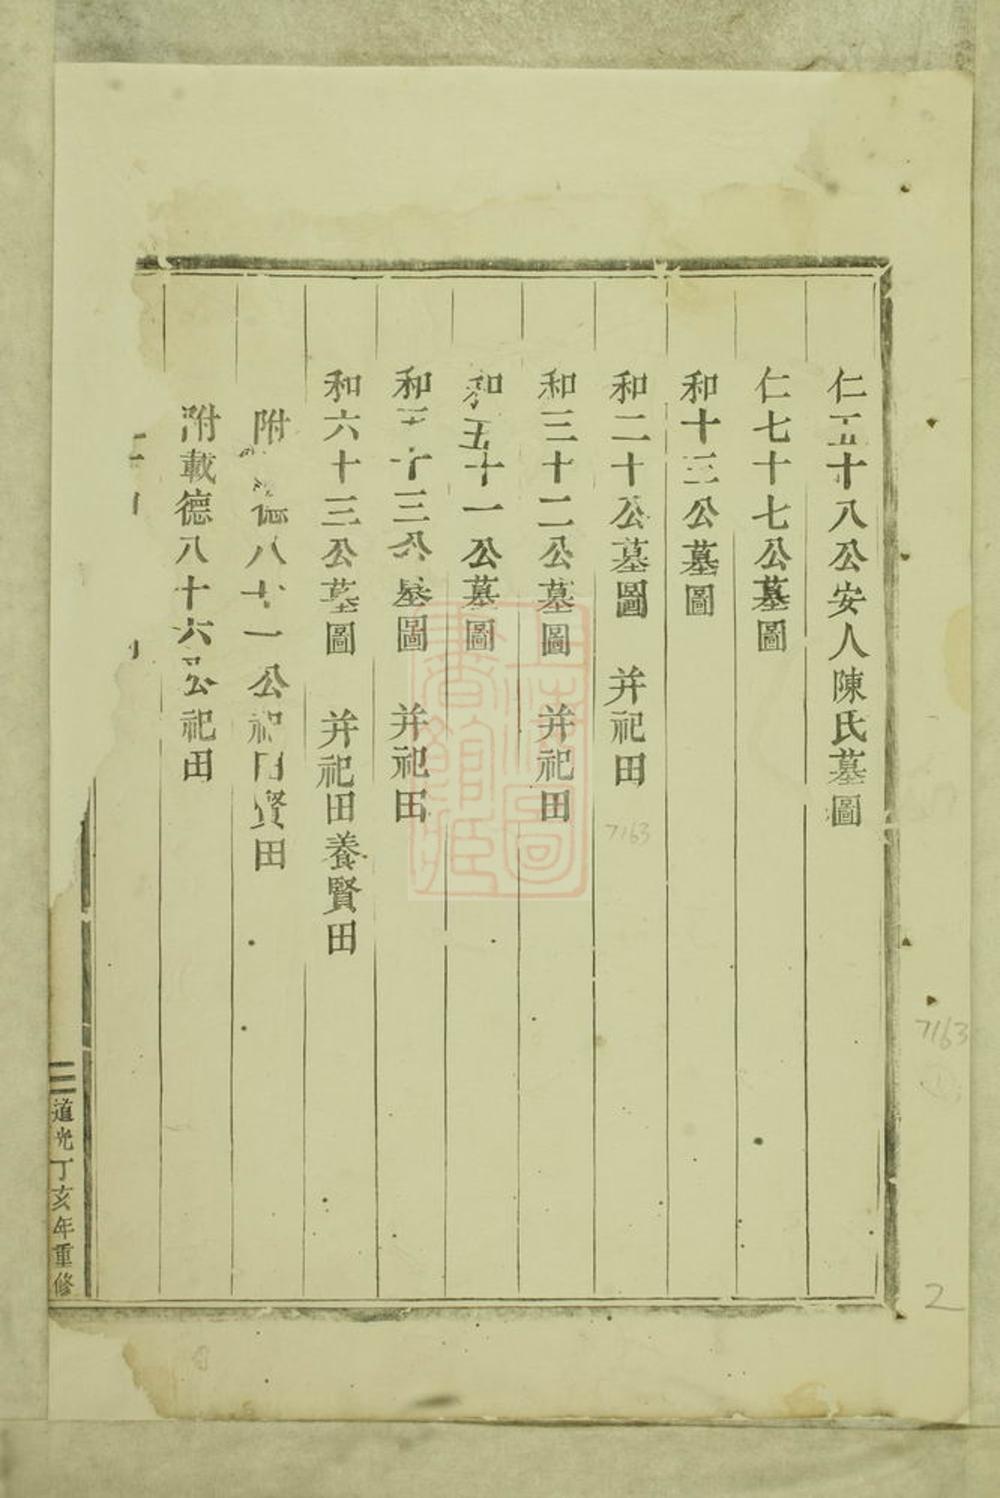 仁五十八公安人陳氏墓圖
仁七十七公墓圖
和十三公墓圖
和二十公墓圖　并祀田
和三十二公墓圖　并祀田
和五十一公墓圖
和五十三公墓圖　并祀田
和六十三公墓圖　并祀田養賢田
附 德八十一公祀田賢田
附載德八十六公祀田
三
道光丁亥年重修
7163
7163
2